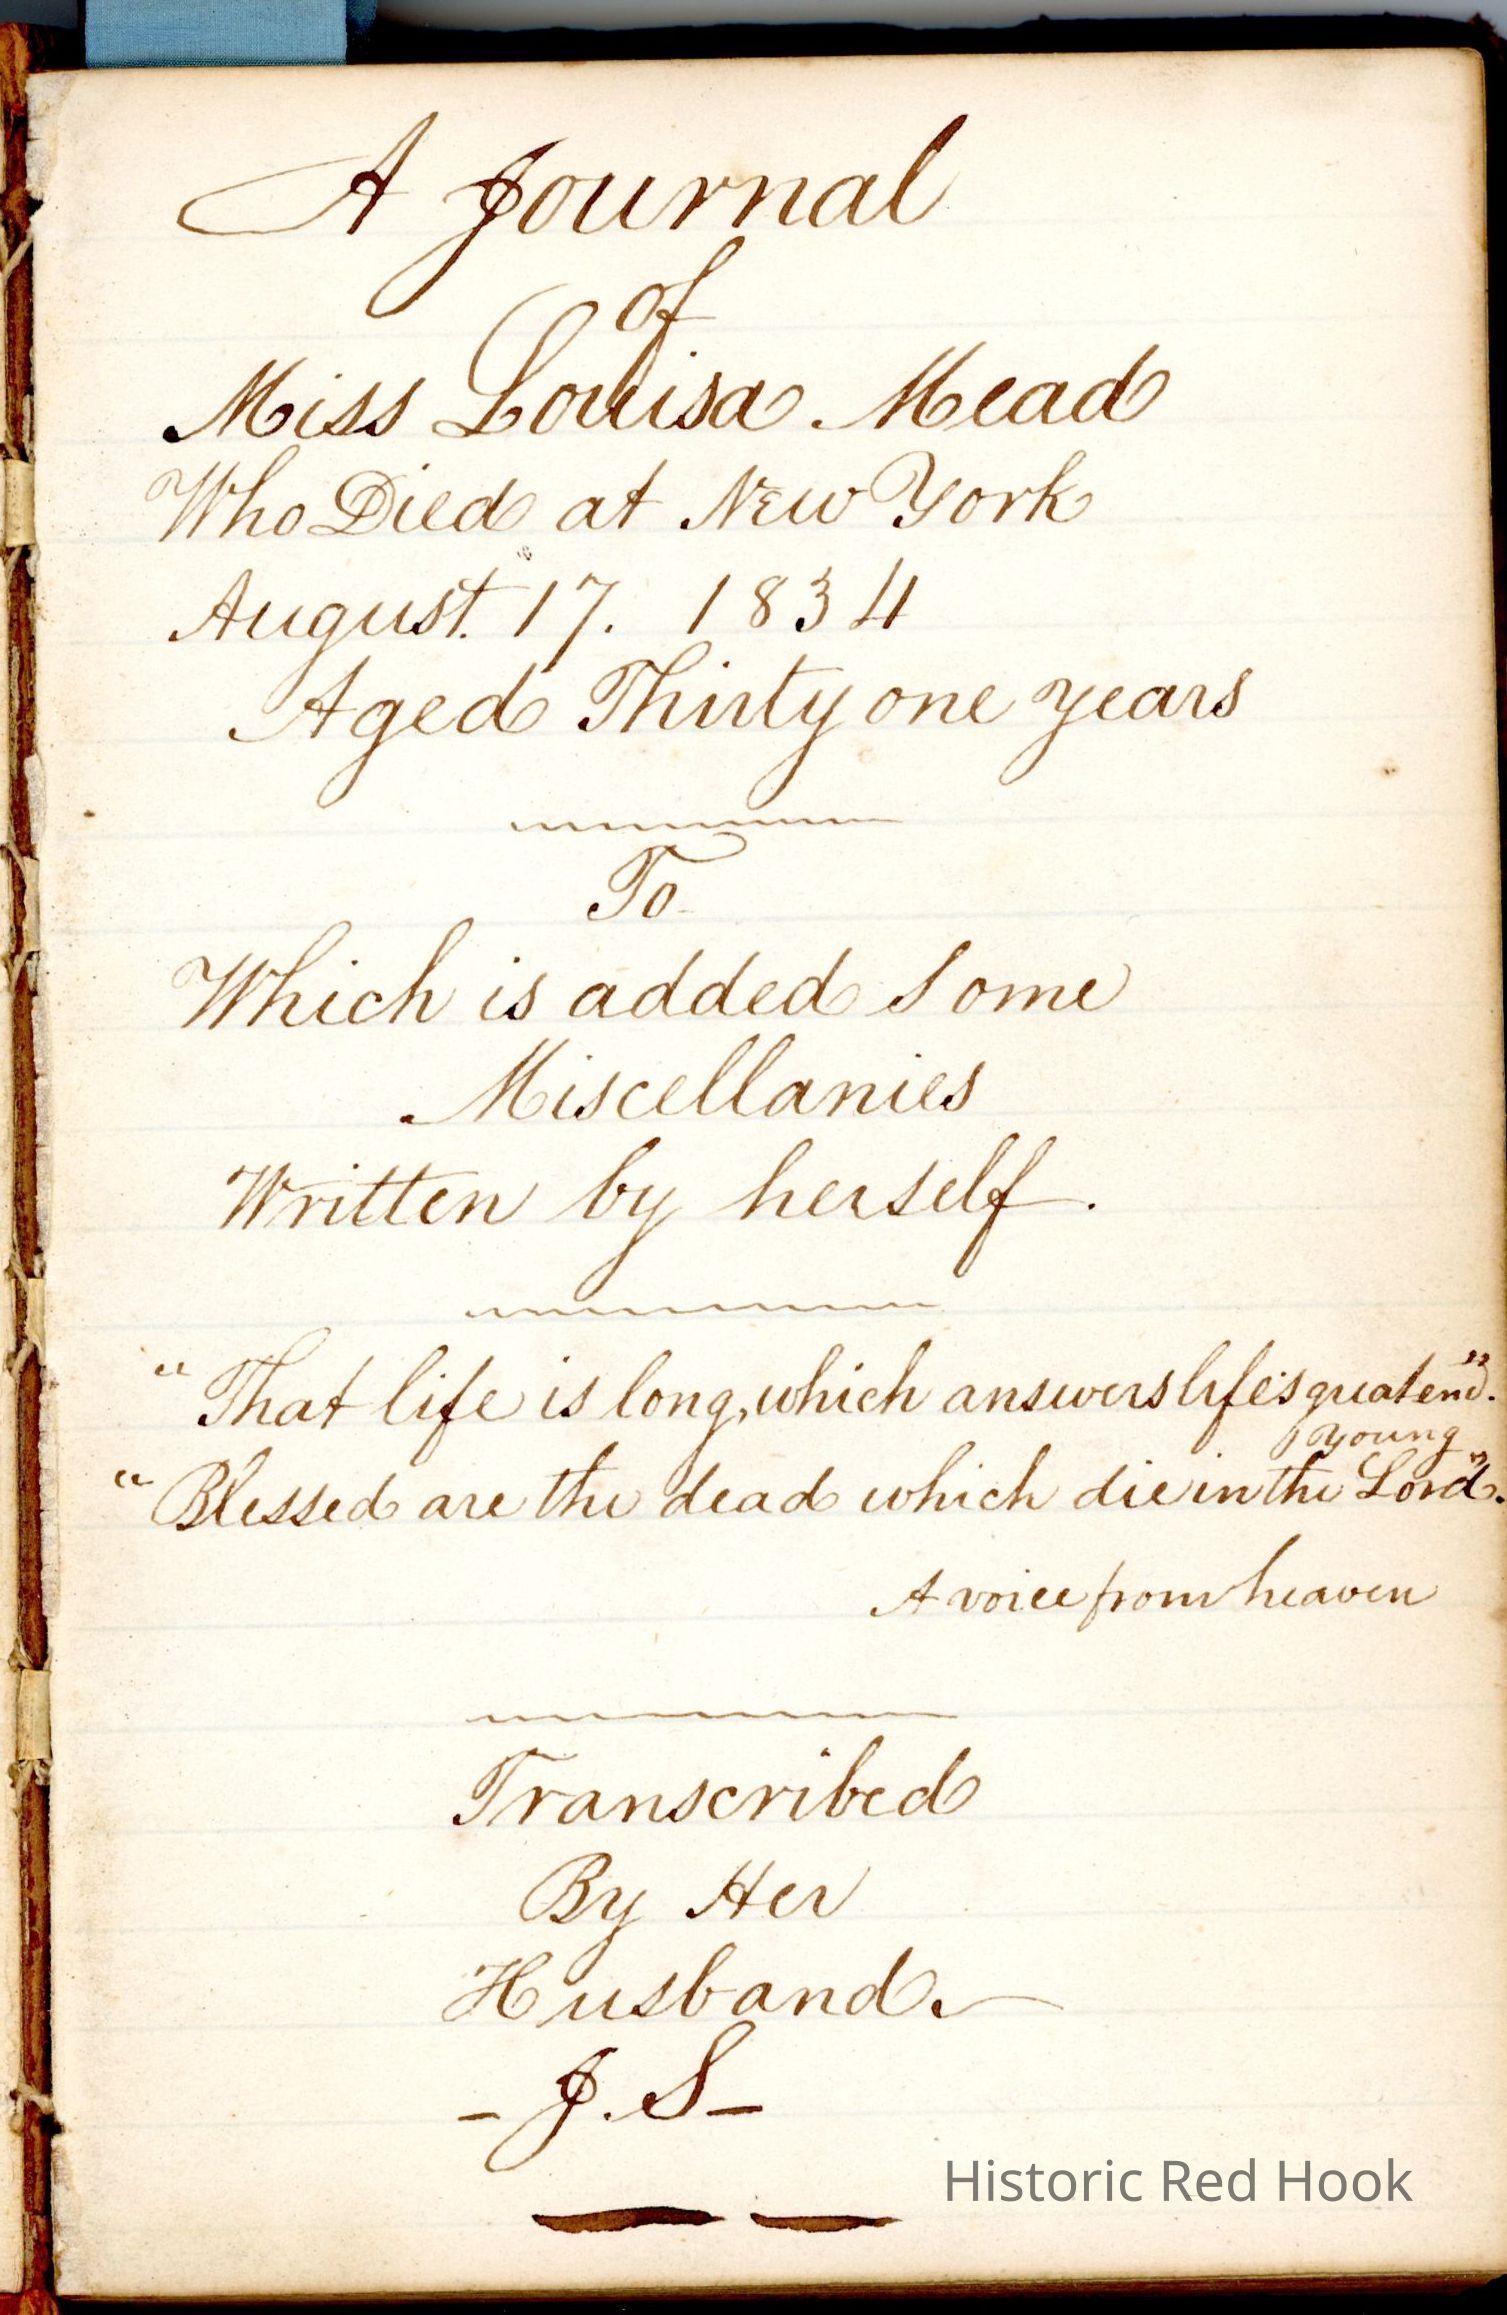 A Journal
of
Miss Louisa Mead
Who Died at New York
August. 17. 1834
Aged Thirty one years
To
Which is added Some
Miscellanies
Written by herself.
"That life is long, which answers life's great end."
Young
"Blessed are the dead which die in the Lord".
A voice from heaven
Transcribed
By Her
Husband.
- J. S -
Historic Red Hook